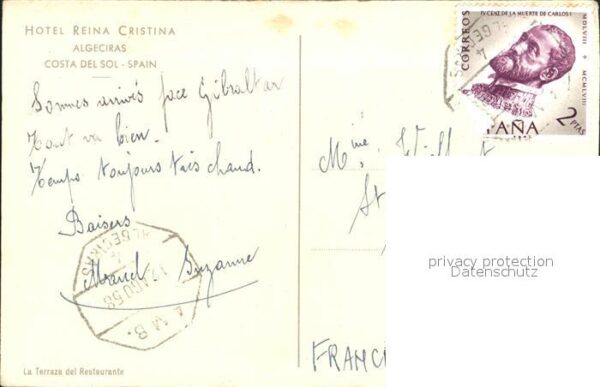 HOTEL REINA CRISTINA
ALGECIRAS
COSTA DEL SOL - SPAIN
Sommes arrivés face Gibraltar
Tout va bien.
Temps toujours très chaud.
Baisers
Marcel Suzanne
La Terraza del Restaurante
CORREOS
IV CENT. DE LA MUERTE DE CARLOS I
MDLVIII + MCMLVIII
2 PTAS
ESPAÑA
ALGECIRAS
12 AGO 58
AMB.
Mme
St
FRANC
privacy protection
Datenschutz